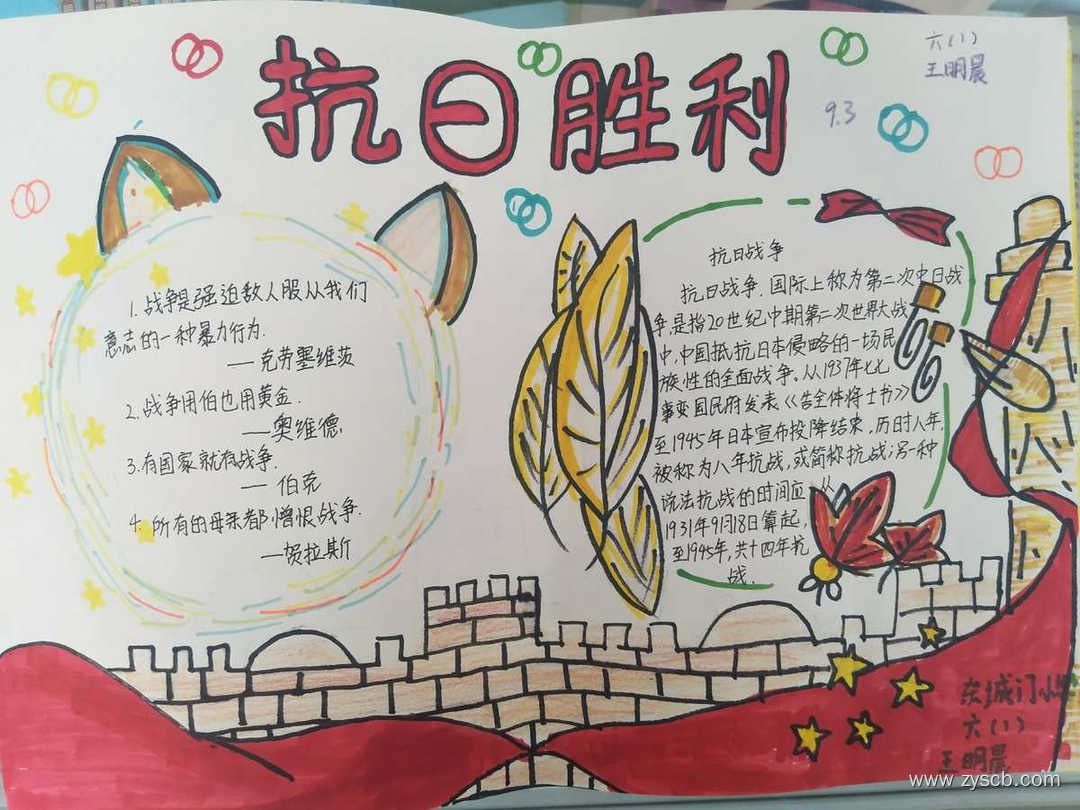 抗日胜利
六(1)
王明晨
9.3
1.战争是强迫敌人服从我们
意志的一种暴力行为.
—克劳塞维茨
2.战争用伯也用黄金.
—奥维德
3.有国家就有战争.
— 伯克
4.所有的母亲都憎恨战争.
—贺拉斯
抗日战争
抗日战争.国际上称为第二次中日战
争,是指20世纪中期第二次世界大战
中,中国抵抗日本侵略的一场民
族性的全面战争。从1937年七七
事变国民府发表《告全体将士书》
至1945年日本宣布投降结束,历时八年,
被称为八年抗战,或简称抗战;另一种
说法抗战的时间应从
1931年9月18日算起,
至1945年,共十四年抗
战.
东城门小学
六(1)
王明晨
www.zyscb.com